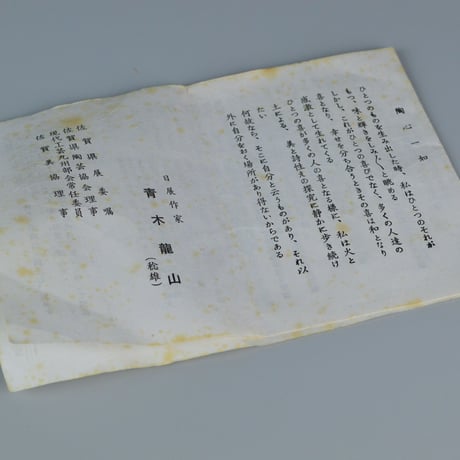 陶心一如
ひとつのものを生み出した時、私はひとつのそれが
もつ、味と輝きをしみ〴〵と眺める
しかし、これがひとつの喜びでなく、多くの人達の
喜となり、幸せを分ち合うときその喜は和となり
感激として生れてくる
ひとつの喜が多くの人の喜となる様に、私は火と
土による、美と詩性えの探究に静かに歩き続け
たい
何故なら、そこに自分と云うものがあり、それ以
外に自分をおく場所があり得ないからである
日展作家
青木龍山
(稔雄)
佐賀県展委嘱
佐賀県陶芸協会理事
現代工芸九州部会常任委員
佐賀美協理事